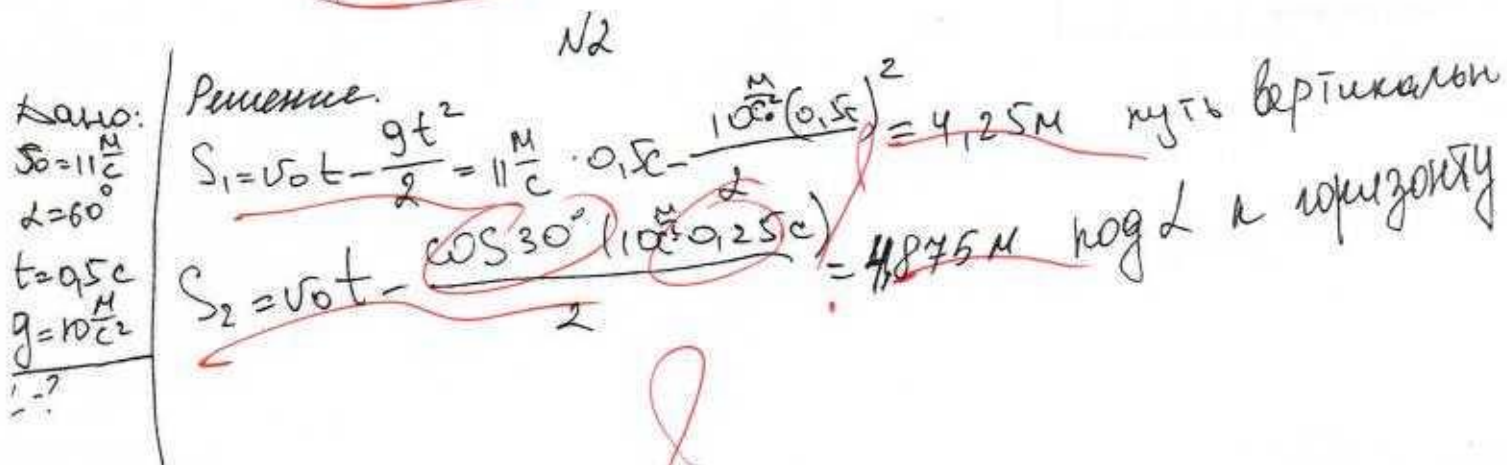 N2
Дано:
v0=11 м/с
α=60°
t=0,5с
g=10 м/с²
-?
Решение.
S₁=v₀t-gt²/2=11 м/с · 0,5с - 10 м/с² (0,5с)²/2 = 4,25м путь вертикальн
S₂=v₀t-cos30°(10 м/с² 0,25с)/2 = 4,875м под α к горизонту